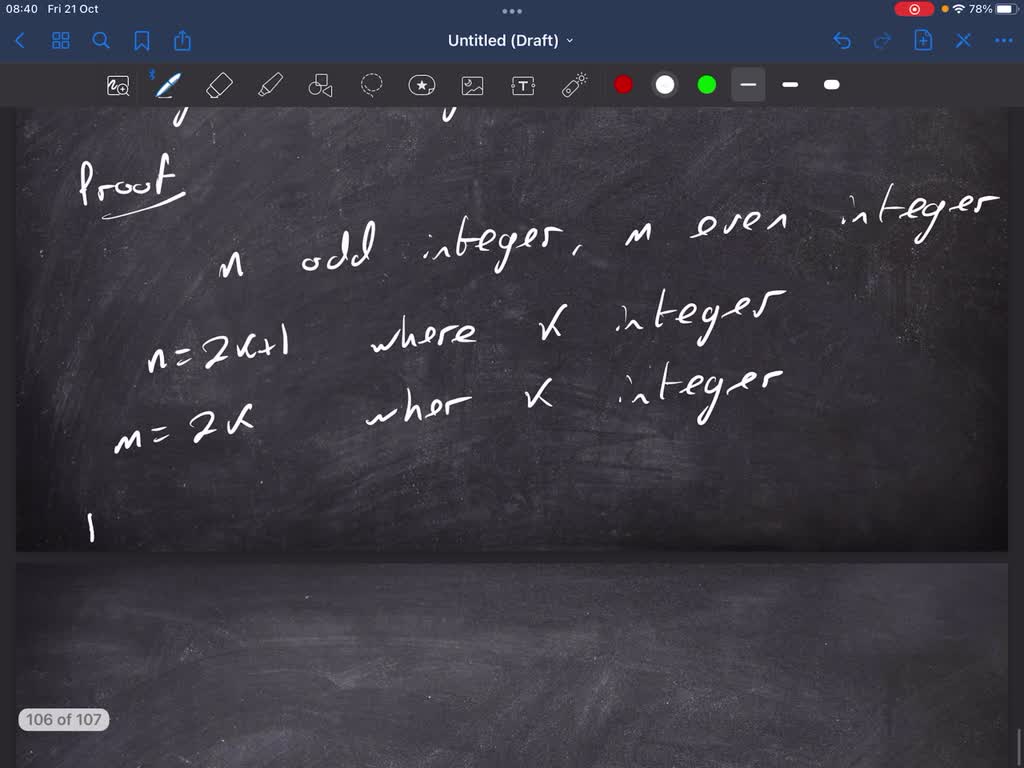 08:40 Fri 21 Oct
78%
Untitled (Draft)
Proof
n odd integer, m even integer
n = 2k+1 where k integer
m = 2k wher k integer
106 of 107